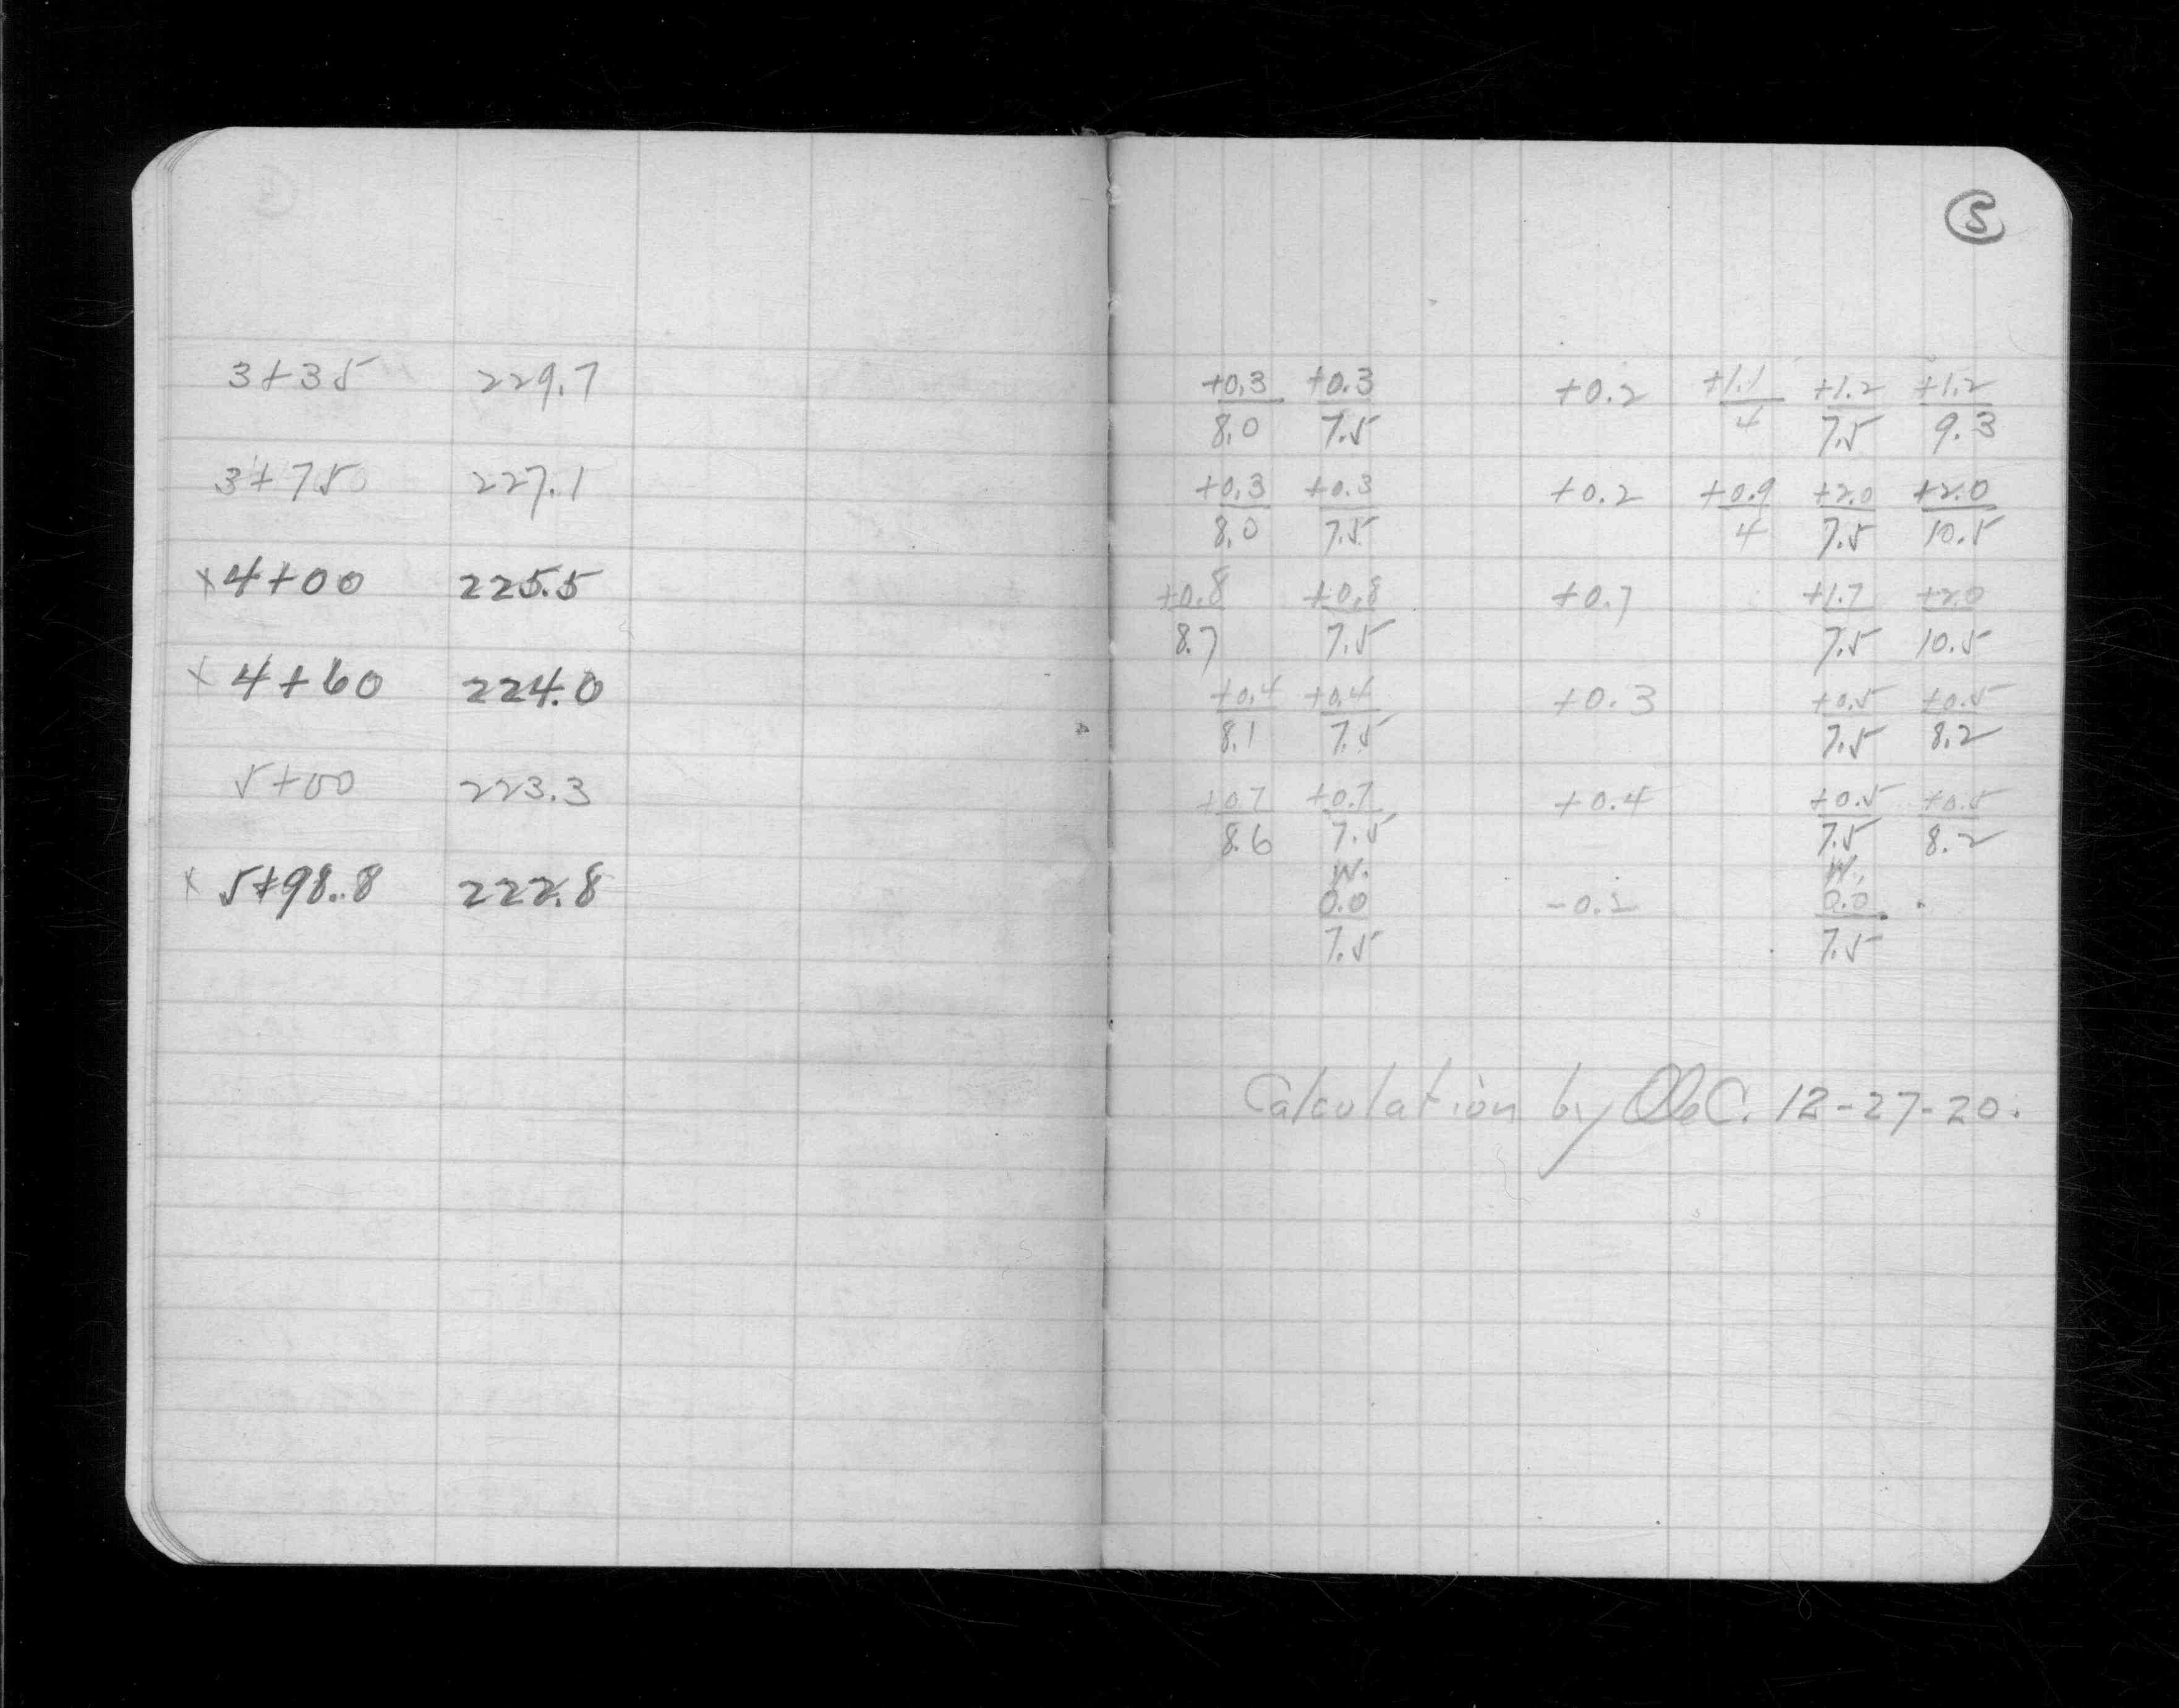 5
3+35 229.7 +0.3 +0.3 +0.2 +1.1 +1.2 +1.2
8.0 7.5 4 7.5 9.3
3+75 227.1 +0.3 +0.3 +0.2 +0.9 +2.0 +2.0
8.0 7.5 4 7.5 10.5
x 4+00 225.5 +0.8 +0.8 +0.7 +1.7 +2.0
8.7 7.5 7.5 10.5
x 4+60 224.0 +0.4 +0.4 +0.3 +0.5 +0.5
8.1 7.5 7.5 8.2
5+00 223.3 +0.7 +0.7 +0.4 +0.5 +0.5
8.6 7.5 7.5 8.2
W. W.
x 5+98.8 222.8 0.0 0.0
7.5 7.5
Calculation by 12-27-20.